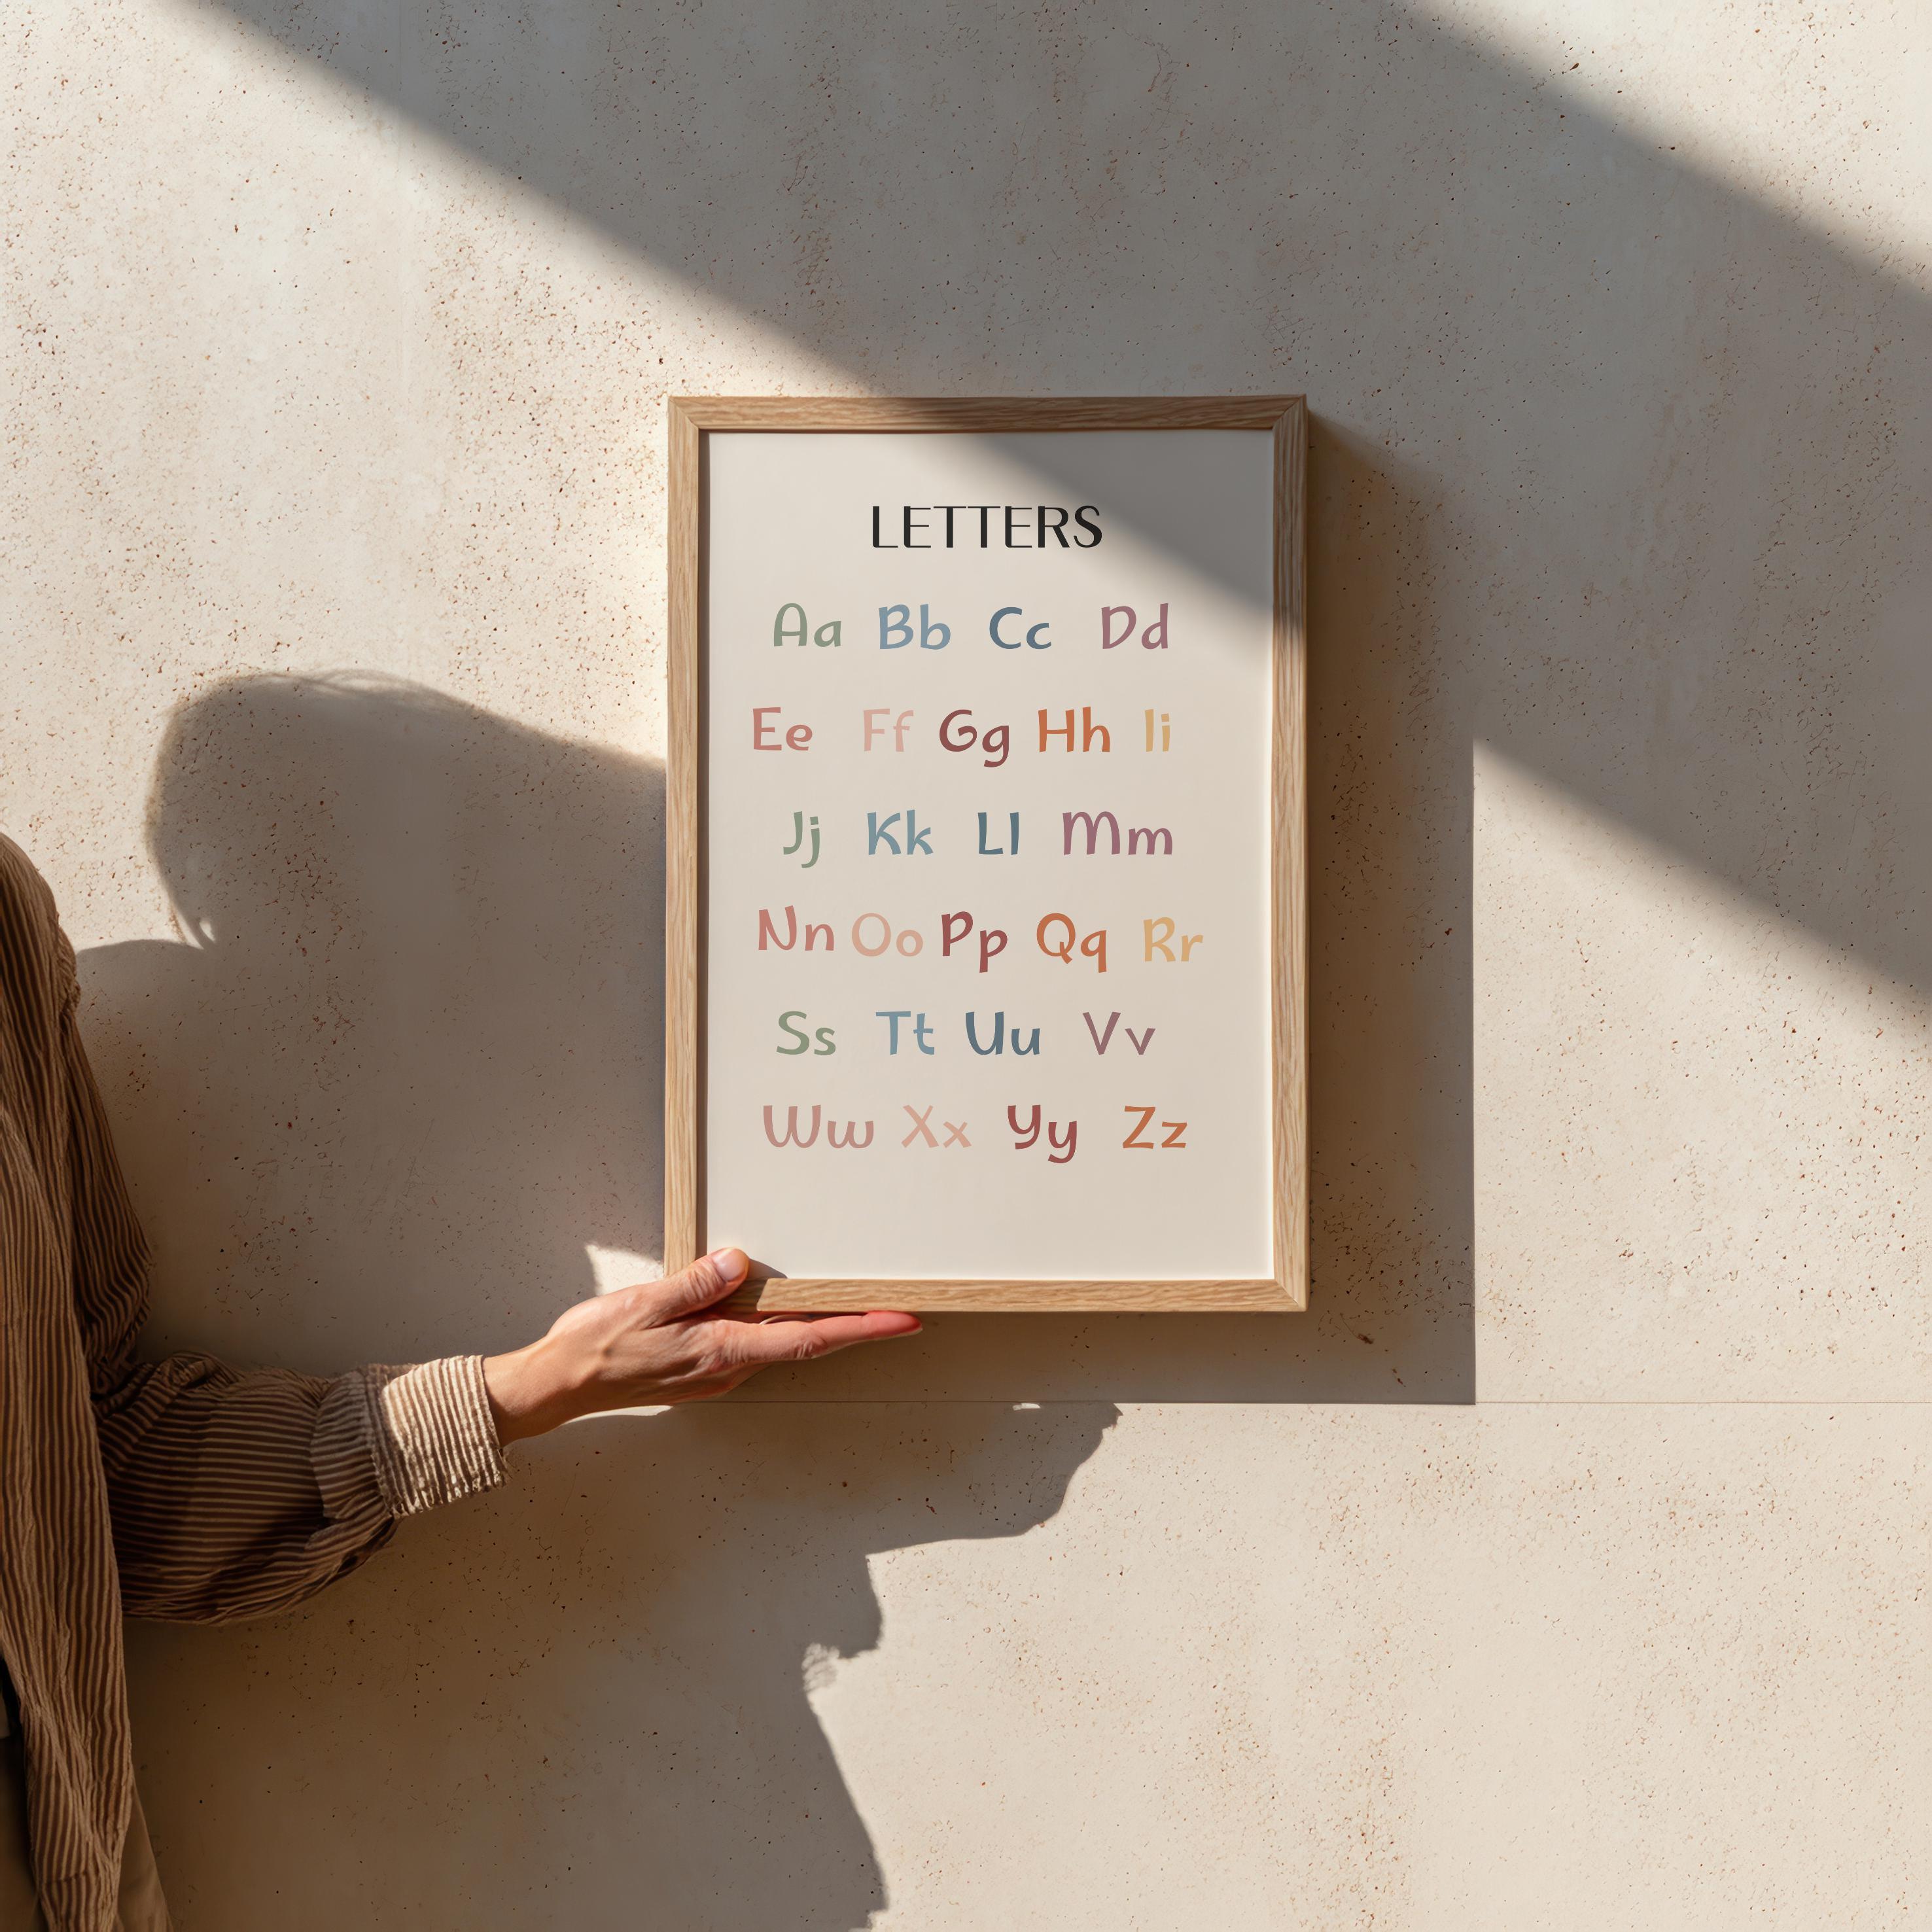 LETTERS
Aa Bb Cc Dd
Ee Ff Gg Hh Ii
Jj Kk Ll Mm
Nn Oo Pp Qq Rr
Ss Tt Uu Vv
Ww Xx Yy Zz